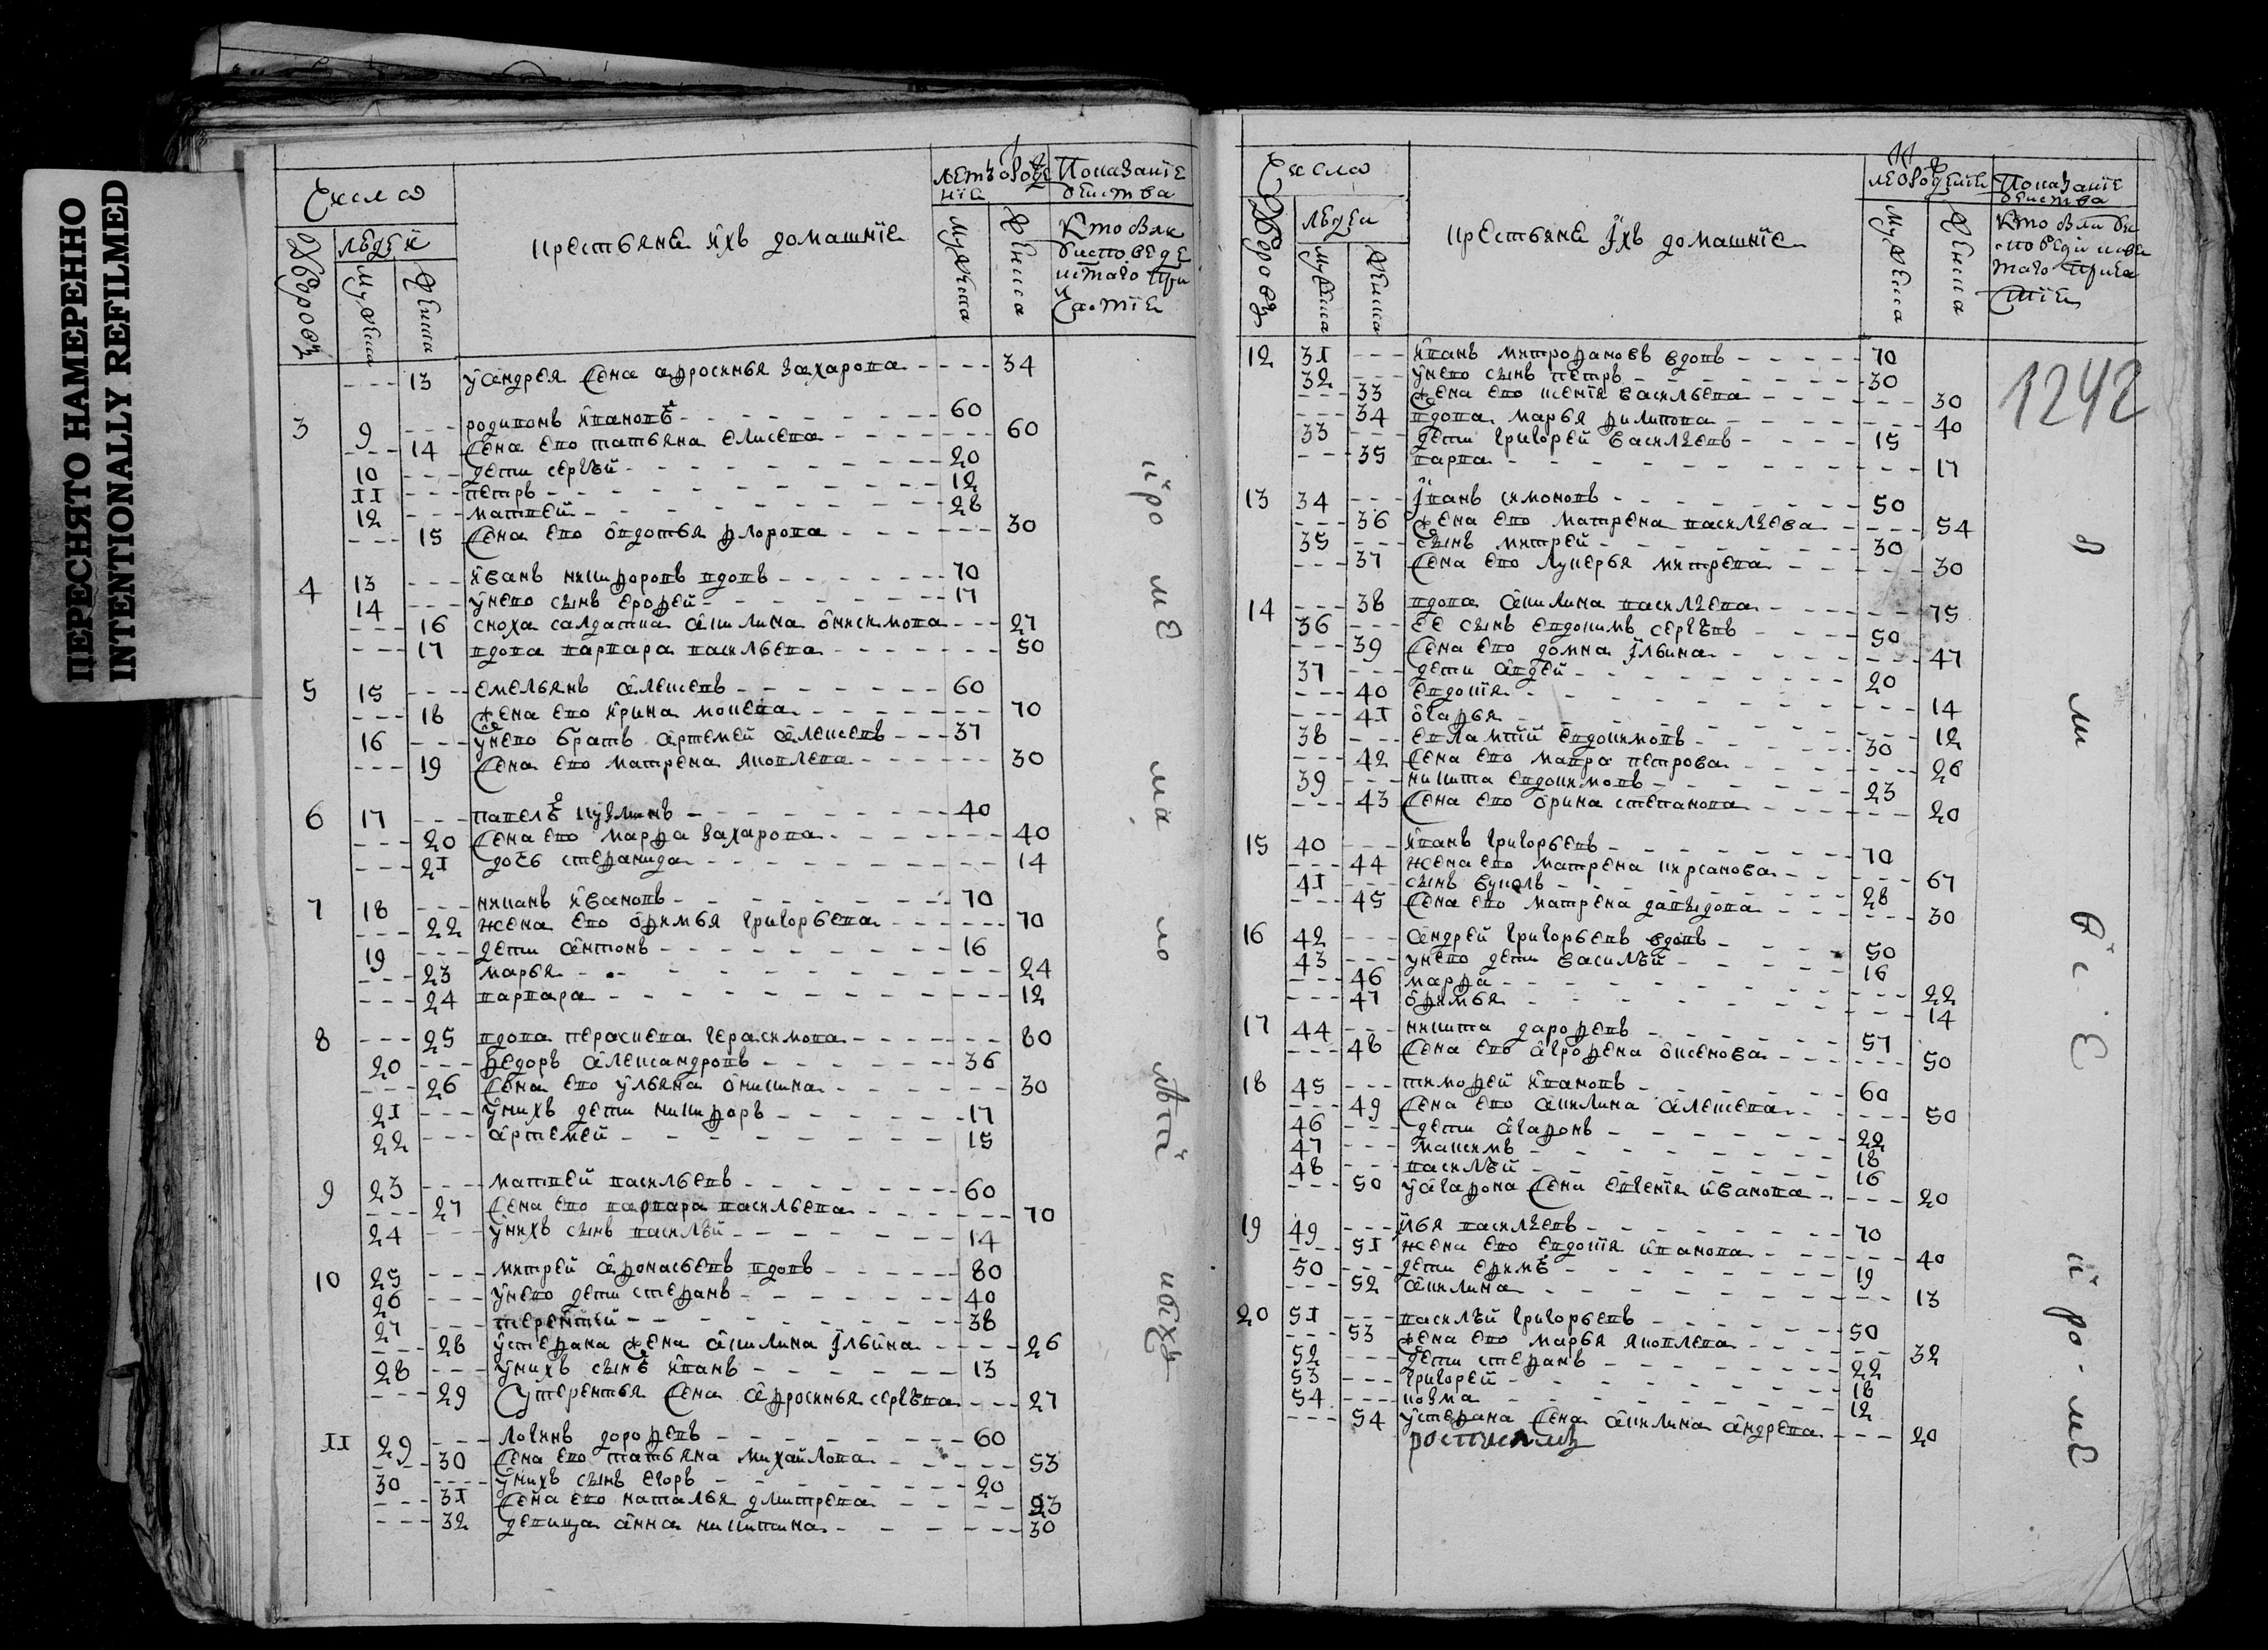 ПЕРЕСНЯТО НАМЕРЕННО
INTENTIONALLY REFILMED
Число
людей
Дворовъ
мужеска
женска
крестьяне ихъ домашніе
летъ от рожде
нія
мужеска
женска
Показаніе
действа
Кто былъ
уисповеде
исвтаго при
частіѧ
13 уандрея жена афросинья захарова 34
3 9 родивонъ ивановъ 60
14 жена ево татьяна елисева 60
10 дети сергѣй 20
11 петръ 12
12 матвей 28
15 жена ево овдотья флорова 30
4 13 иванъ никифоровъ вдовъ 70
14 унево сынъ ерофей 17
16 сноха салдатка акилина онисимова 27
17 вдова варвара васильева 50
5 15 емельянъ алексевъ 60
18 жена ево ирина мокева 70
16 унево братъ артемей алексевъ 37
19 жена ево матрена яковлева 30
6 17 павелъ кузминъ 40
20 жена ево марфа захарова 40
21 дочь стефанида 14
7 18 никанъ ивановъ 70
22 жена ево офимья григорьева 70
19 дети антонъ 16
23 марья 24
24 варвара 12
8 25 вдова парасковя герасимова 80
20 федоръ александровъ 36
26 жена ево ульяна оникина 30
21 унихъ дети никифоръ 17
22 артемей 15
9 23 матвей васильевъ 60
27 жена ево варвара васильева 70
24 унихъ сынъ василѣй 14
10 25 митрей афонасьевъ вдовъ 80
26 унево дети стефанъ 40
27 терентей 38
28 устефана жена акилина ильина 26
28 унихъ сынъ иванъ 13
29 утерентья жена афросинья сергѣва 27
11 29 логинъ дорофевъ 60
30 жена ево татьяна михайлова 53
30 унихъ сынъ егоръ 20
31 жена ево наталья дмитрева 23
32 девица анна никитина 30
кро мѣ ма ло лѣт нихъ
Число
людей
Дворовъ
мужеска
женска
крестьяне ихъ домашніе
мужеска
женска
Показаніе
действа
1242
12 31 иванъ митрофановъ вдовъ 70
32 унево сынъ петръ 30
33 жена ево ксенія васильева 30
34 вдова марья филипова 40
33 дети григорей василѣевъ 15
35 варва 17
13 34 иванъ симоновъ 50
36 жена ево матрена василѣева 54
35 сынъ митрей 30
37 жена ево лукерья митрева 30
14 38 вдова акилина василѣева 75
36 ее сынъ евдокимъ сергѣвъ 50
39 жена ево домна ильина 47
37 дети андей 20
40 евдокія 14
41 огарья 12
38 евлампій евдокимовъ 30
42 жена ево мавра петрова 26
39 никита евдокимовъ 23
43 жена ево орина степанова 20
15 40 иванъ григорьевъ 70
44 жена ево матрена кирсанова 67
41 сынъ вуколъ 28
45 жена ево матрена давыдова 30
16 42 андрей григорьевъ вдовъ 50
43 унево дети василѣй 16
46 марфа 22
47 офимья 14
17 44 никита дарофевъ 57
48 жена ево агрофена аксенова 50
18 45 тимофей ивановъ 60
49 жена ево акилина алексева 50
46 дети агафонъ 22
47 максимъ 18
48 василѣй 16
50 уагафона жена евгенія иванова 20
19 49 илья василѣевъ 70
51 жена ево евдокія иванова 40
50 дети ефимъ 19
52 акилина 13
20 51 василѣй григорьевъ 50
53 жена ево марья яковлева 32
52 дети стефанъ 22
53 григорей 18
54 козма 12
54 устефана жена акилина андрева 20